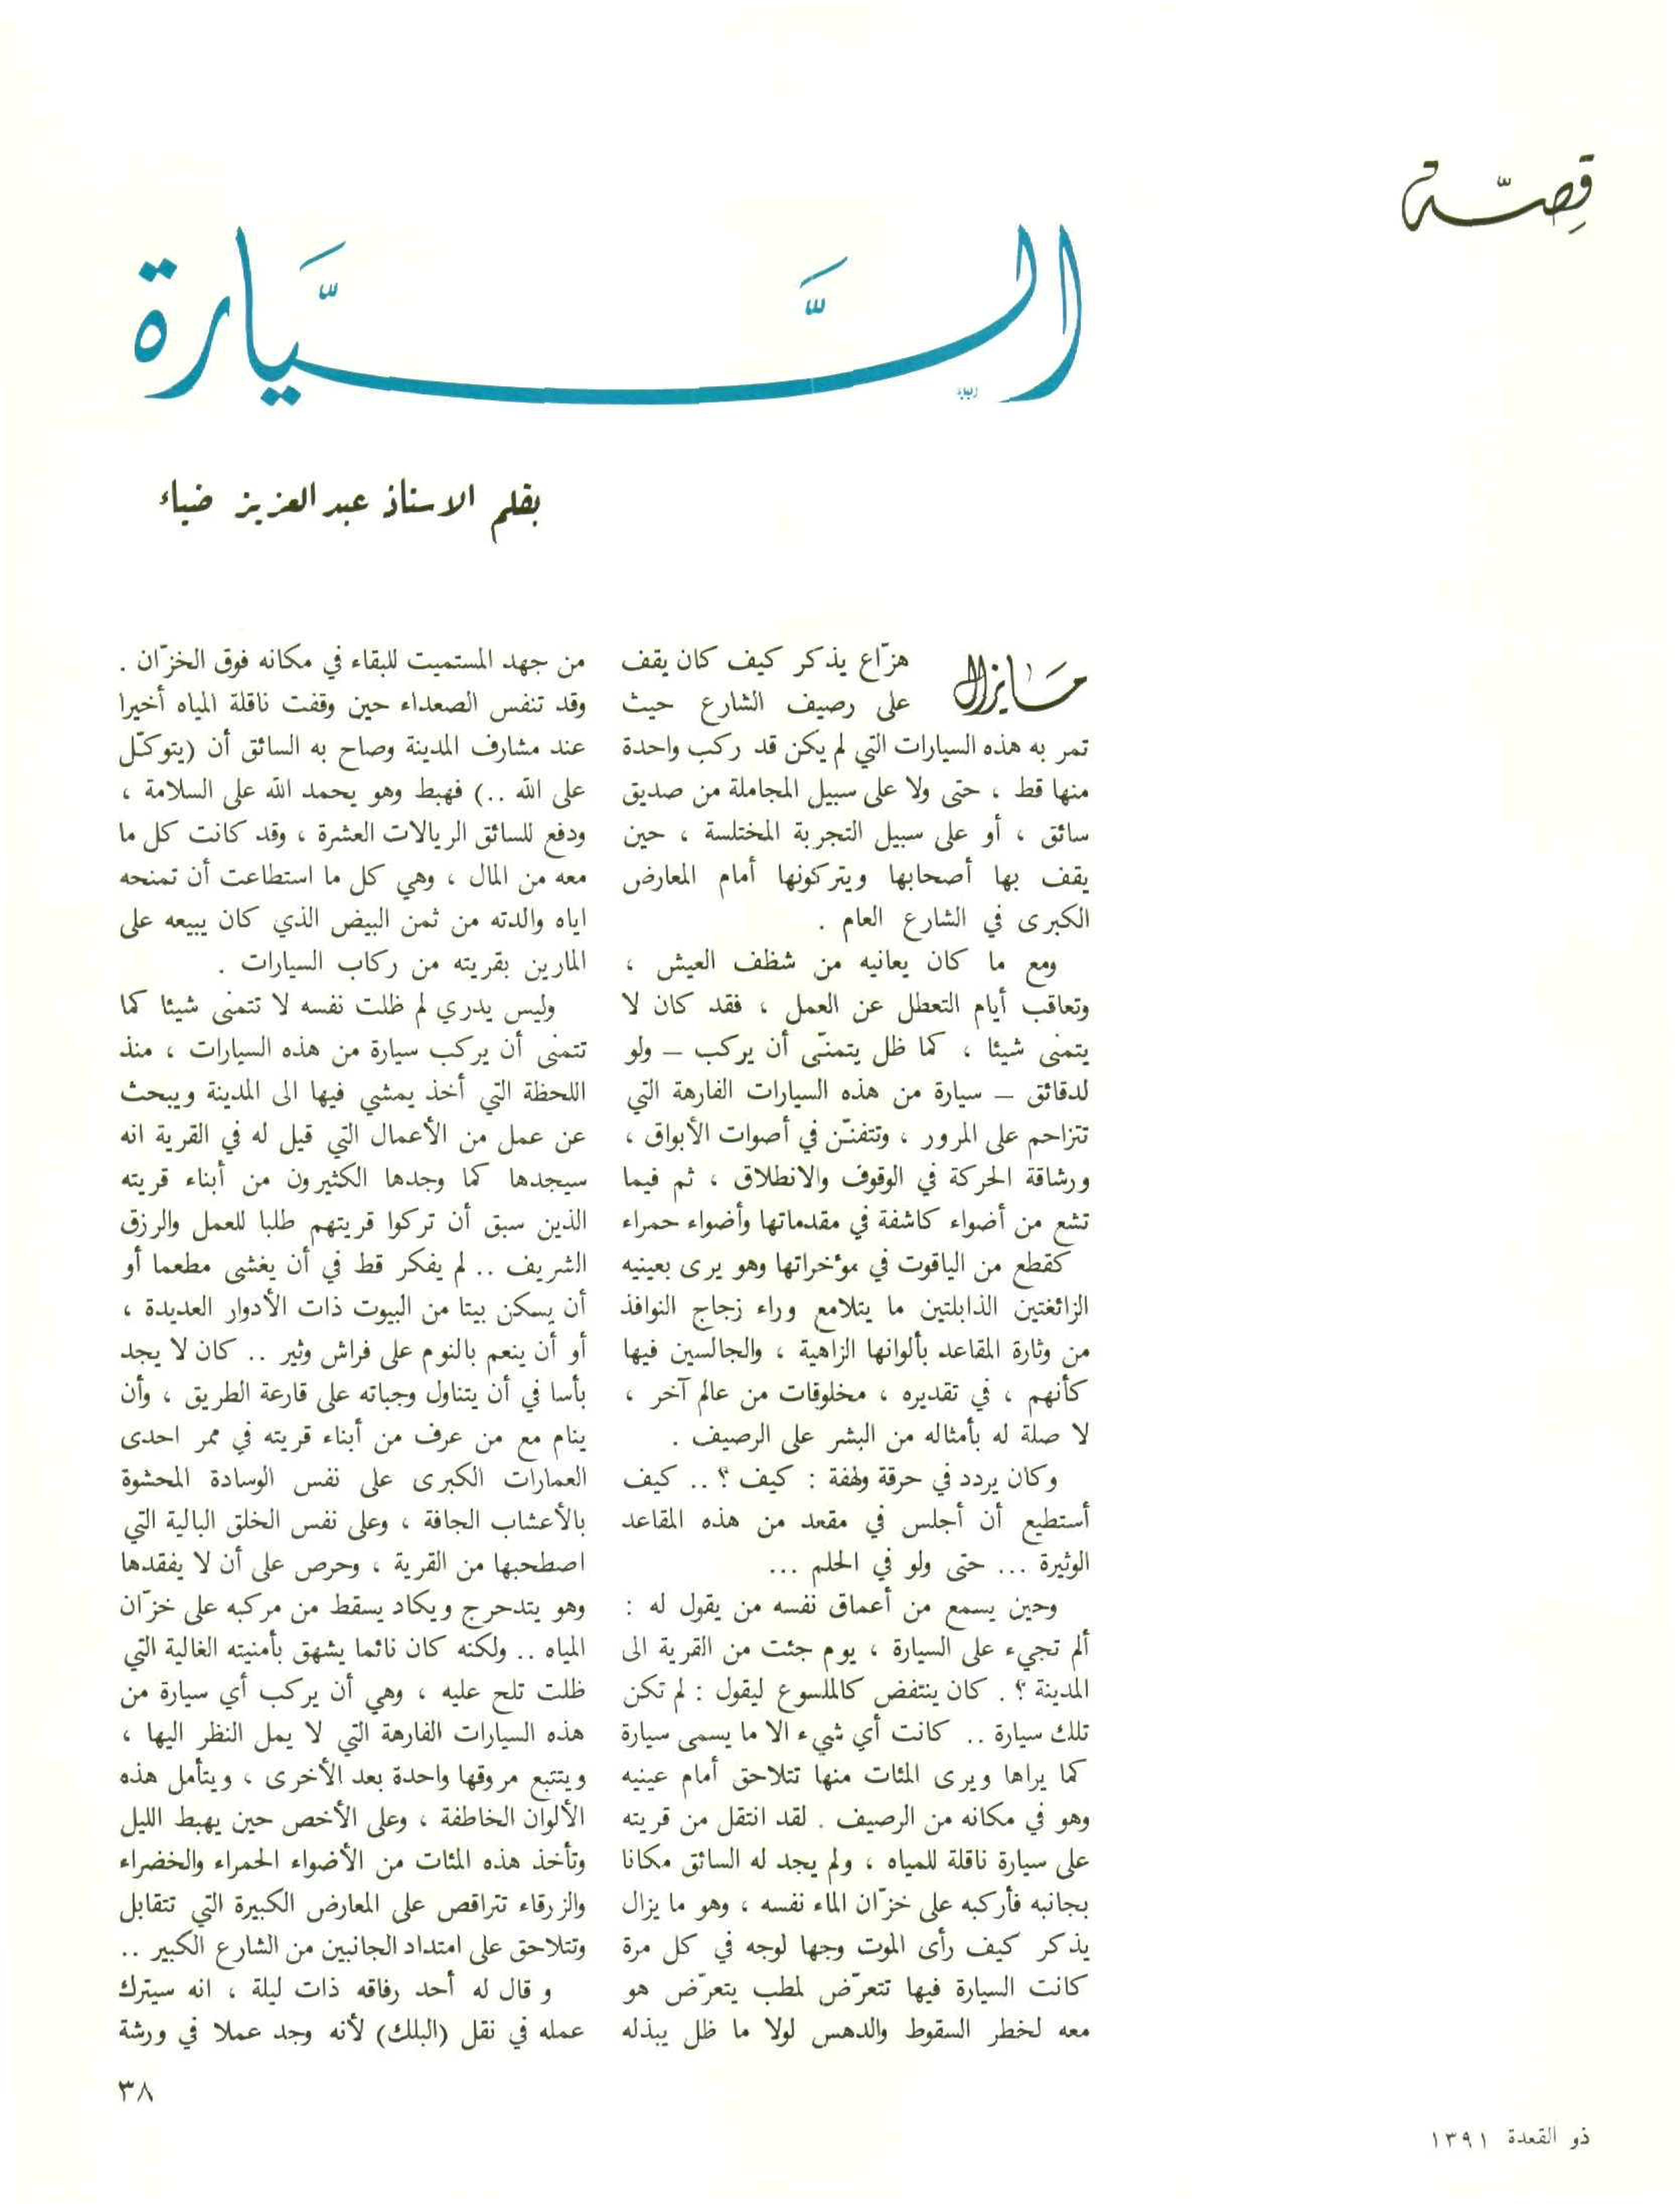 قِصّة
السَّيَّارة
بقلم الاستاذ عبد العزيز ضياء
مَايزال هزّاع يذكر كيف كان يقف
على رصيف الشارع حيث
تمر به هذه السيارات التي لم يكن قد ركب واحدة
منها قط ، حتى ولا على سبيل المجاملة من صديق
سائق ، أو على سبيل التجربة المختلسة ، حين
يقف بها أصحابها ويتركونها أمام المعارض
الكبرى في الشارع العام .
ومع ما كان يعانيه من شظف العيش ،
وتعاقب أيام التعطل عن العمل ، فقد كان لا
يتمنى شيئا ، كما ظل يتمنّى أن يركب – ولو
لدقائق – سيارة من هذه السيارات الفارهة التي
تتزاحم على المرور ، وتتفنّن في أصوات الأبواق ،
ورشاقة الحركة في الوقوف والانطلاق ، ثم فيما
تشع من أضواء كاشفة في مقدماتها وأضواء حمراء
كقطع من الياقوت في مؤخراتها وهو يرى بعينيه
الزائغتين الذابلتين ما يتلامع وراء زجاج النوافذ
من وثارة المقاعد بألوانها الزاهية ، والجالسين فيها
كأنهم ، في تقديره ، مخلوقات من عالم آخر ،
لا صلة له بأمثاله من البشر على الرصيف .
وكان يردد في حرقة ولهفة : كيف ؟ .. كيف
أستطيع أن أجلس في مقعد من هذه المقاعد
الوثيرة ... حتى ولو في الحلم ...
وحين يسمع من أعماق نفسه من يقول له :
ألم تجيء على السيارة ، يوم جئت من القرية الى
المدينة ؟ . كان ينتفض كالملسوع ليقول : لم تكن
تلك سيارة .. كانت أي شيء الا ما يسمى سيارة
كما يراها ويرى المئات منها تتلاحق أمام عينيه
وهو في مكانه من الرصيف . لقد انتقل من قريته
على سيارة ناقلة للمياه ، ولم يجد له السائق مكانا
بجانبه فأركبه على خزّان الماء نفسه ، وهو ما يزال
يذكر كيف رأى الموت وجها لوجه في كل مرة
كانت السيارة فيها تتعرّض لمطب يتعرّض هو
معه لخطر السقوط والدهس لولا ما ظل يبذله
من جهد المستميت للبقاء في مكانه فوق الخزّان .
وقد تنفس الصعداء حين وقفت ناقلة المياه أخيرا
عند مشارف المدينة وصاح به السائق أن (يتوكّل
على الله ..) فهبط وهو يحمد الله على السلامة ،
ودفع للسائق الريالات العشرة ، وقد كانت كل ما
معه من المال ، وهي كل ما استطاعت أن تمنحه
اياه والدته من ثمن البيض الذي كان يبيعه على
المارين بقريته من ركاب السيارات .
وليس يدري لم ظلت نفسه لا تتمنى شيئا كما
تتمنى أن يركب سيارة من هذه السيارات ، منذ
اللحظة التي أخذ يمشي فيها الى المدينة ويبحث
عن عمل من الأعمال التي قيل له في القرية انه
سيجدها كما وجدها الكثيرون من أبناء قريته
الذين سبق أن تركوا قريتهم طلبا للعمل والرزق
الشريف .. لم يفكر قط في أن يغشى مطعما أو
أن يسكن بيتا من البيوت ذات الأدوار العديدة ،
أو أن ينعم بالنوم على فراش وثير .. كان لا يجد
بأسا في أن يتناول وجباته على قارعة الطريق ، وأن
ينام مع من عرف من أبناء قريته في ممر احدى
العمارات الكبرى على نفس الوسادة المحشوة
بالأعشاب الجافة ، وعلى نفس الخلق البالية التي
اصطحبها من القرية ، وحرص على أن لا يفقدها
وهو يتدحرج ويكاد يسقط من مركبه على خزّان
المياه .. ولكنه كان نائما يشهق بأمنيته الغالية التي
ظلت تلح عليه ، وهي أن يركب أي سيارة من
هذه السيارات الفارهة التي لا يمل النظر اليها ،
ويتتبع مروقها واحدة بعد الأخرى ، ويتأمل هذه
الألوان الخاطفة ، وعلى الأخص حين يهبط الليل
وتأخذ هذه المئات من الأضواء الحمراء والخضراء
والزرقاء تتراقص على المعارض الكبيرة التي تتقابل
وتتلاحق على امتداد الجانبين من الشارع الكبير ..
و قال له أحد رفاقه ذات ليلة ، انه سيترك
عمله في نقل (البلك) لأنه وجد عملا في ورشة
٣٨
ذو القعدة ١٣٩١